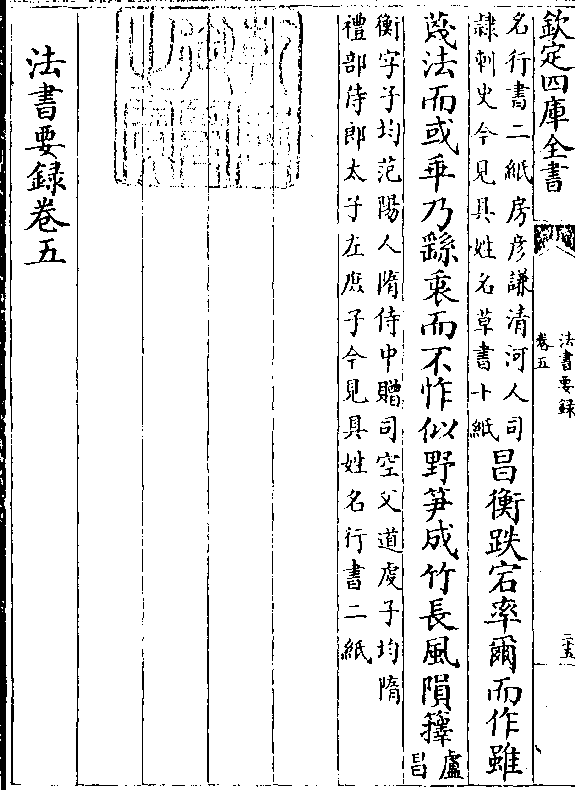 欽定四庫全書
法書要録
卷五
名行書二紙房彦謙清河人司
隷刺史今見具姓名草書十紙
昌衡跌宕率爾而作雖
蔑法而或乖乃繇衷而不怍似野笋成竹長風隕籜
盧
昌
衡字子均范陽人隋侍中贈司空父道虔子均隋
禮部侍郎太子左庶子今見具姓名行書二紙
法書要録卷五